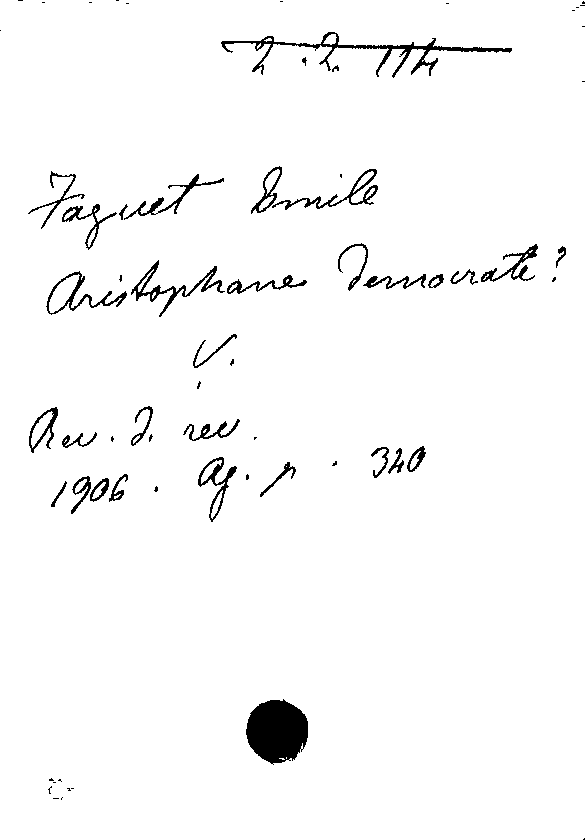 2.2 114
Faguet Emile
Aristophane démocrate?
V.
Rev. d. rev.
1906. Ag. p. 340